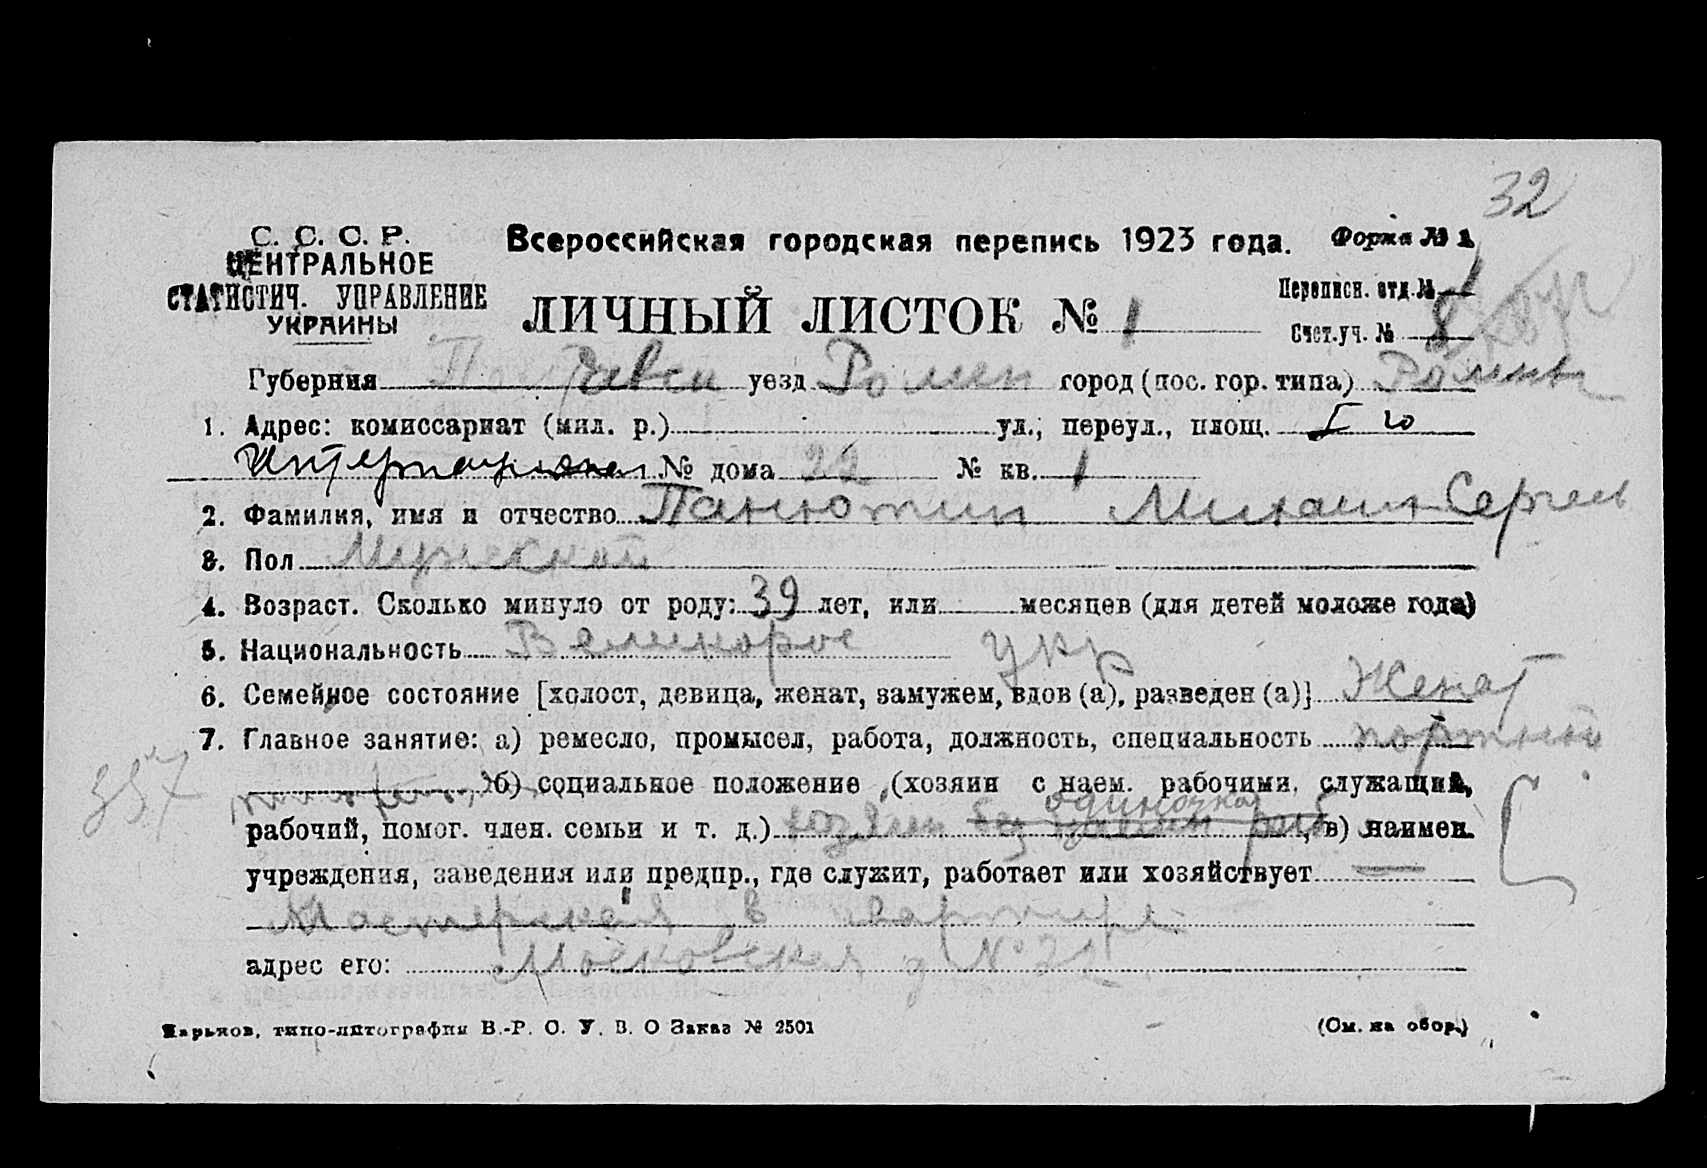 32
С. С. С. Р.
ЦЕНТРАЛЬНОЕ
СТАТИСТИЧ. УПРАВЛЕНИЕ
УКРАИНЫ
Всероссийская городская перепись 1923 года.
Форма № 1
ЛИЧНЫЙ ЛИСТОК № 1
Переписн. отд. № 1
Счет. уч. № 8
Губерния Полтавск уезд Ромен город (пос. гор. типа) Ромны
1. Адрес: комиссариат (мил. р.) ул., переул., площ. I го
Интернационала № дома 22 № кв. 1
2. Фамилия, имя и отчество Панютин Михаил Сергеев
3. Пол Мужской
4. Возраст. Сколько минуло от роду: 39 лет, или месяцев (для детей моложе года)
5. Национальность Великорос укр
6. Семейное состояние [холост, девица, женат, замужем, вдов (а), разведен (а)] Женат
7. Главное занятие: а) ремесло, промысел, работа, должность, специальность портной
357
б) социальное положение (хозяин с наем. рабочими, служащий,
одиночка
рабочий, помог. член. семьи и т. д.) хозяин без раб в) наимен.
учреждения, заведения или предпр., где служит, работает или хозяйствует —
Мастерская в квартире
адрес его: Московская д № 22
Харьков, типо-литография В.-Р. О. У. В. О Заказ № 2501
(См. на обор.)